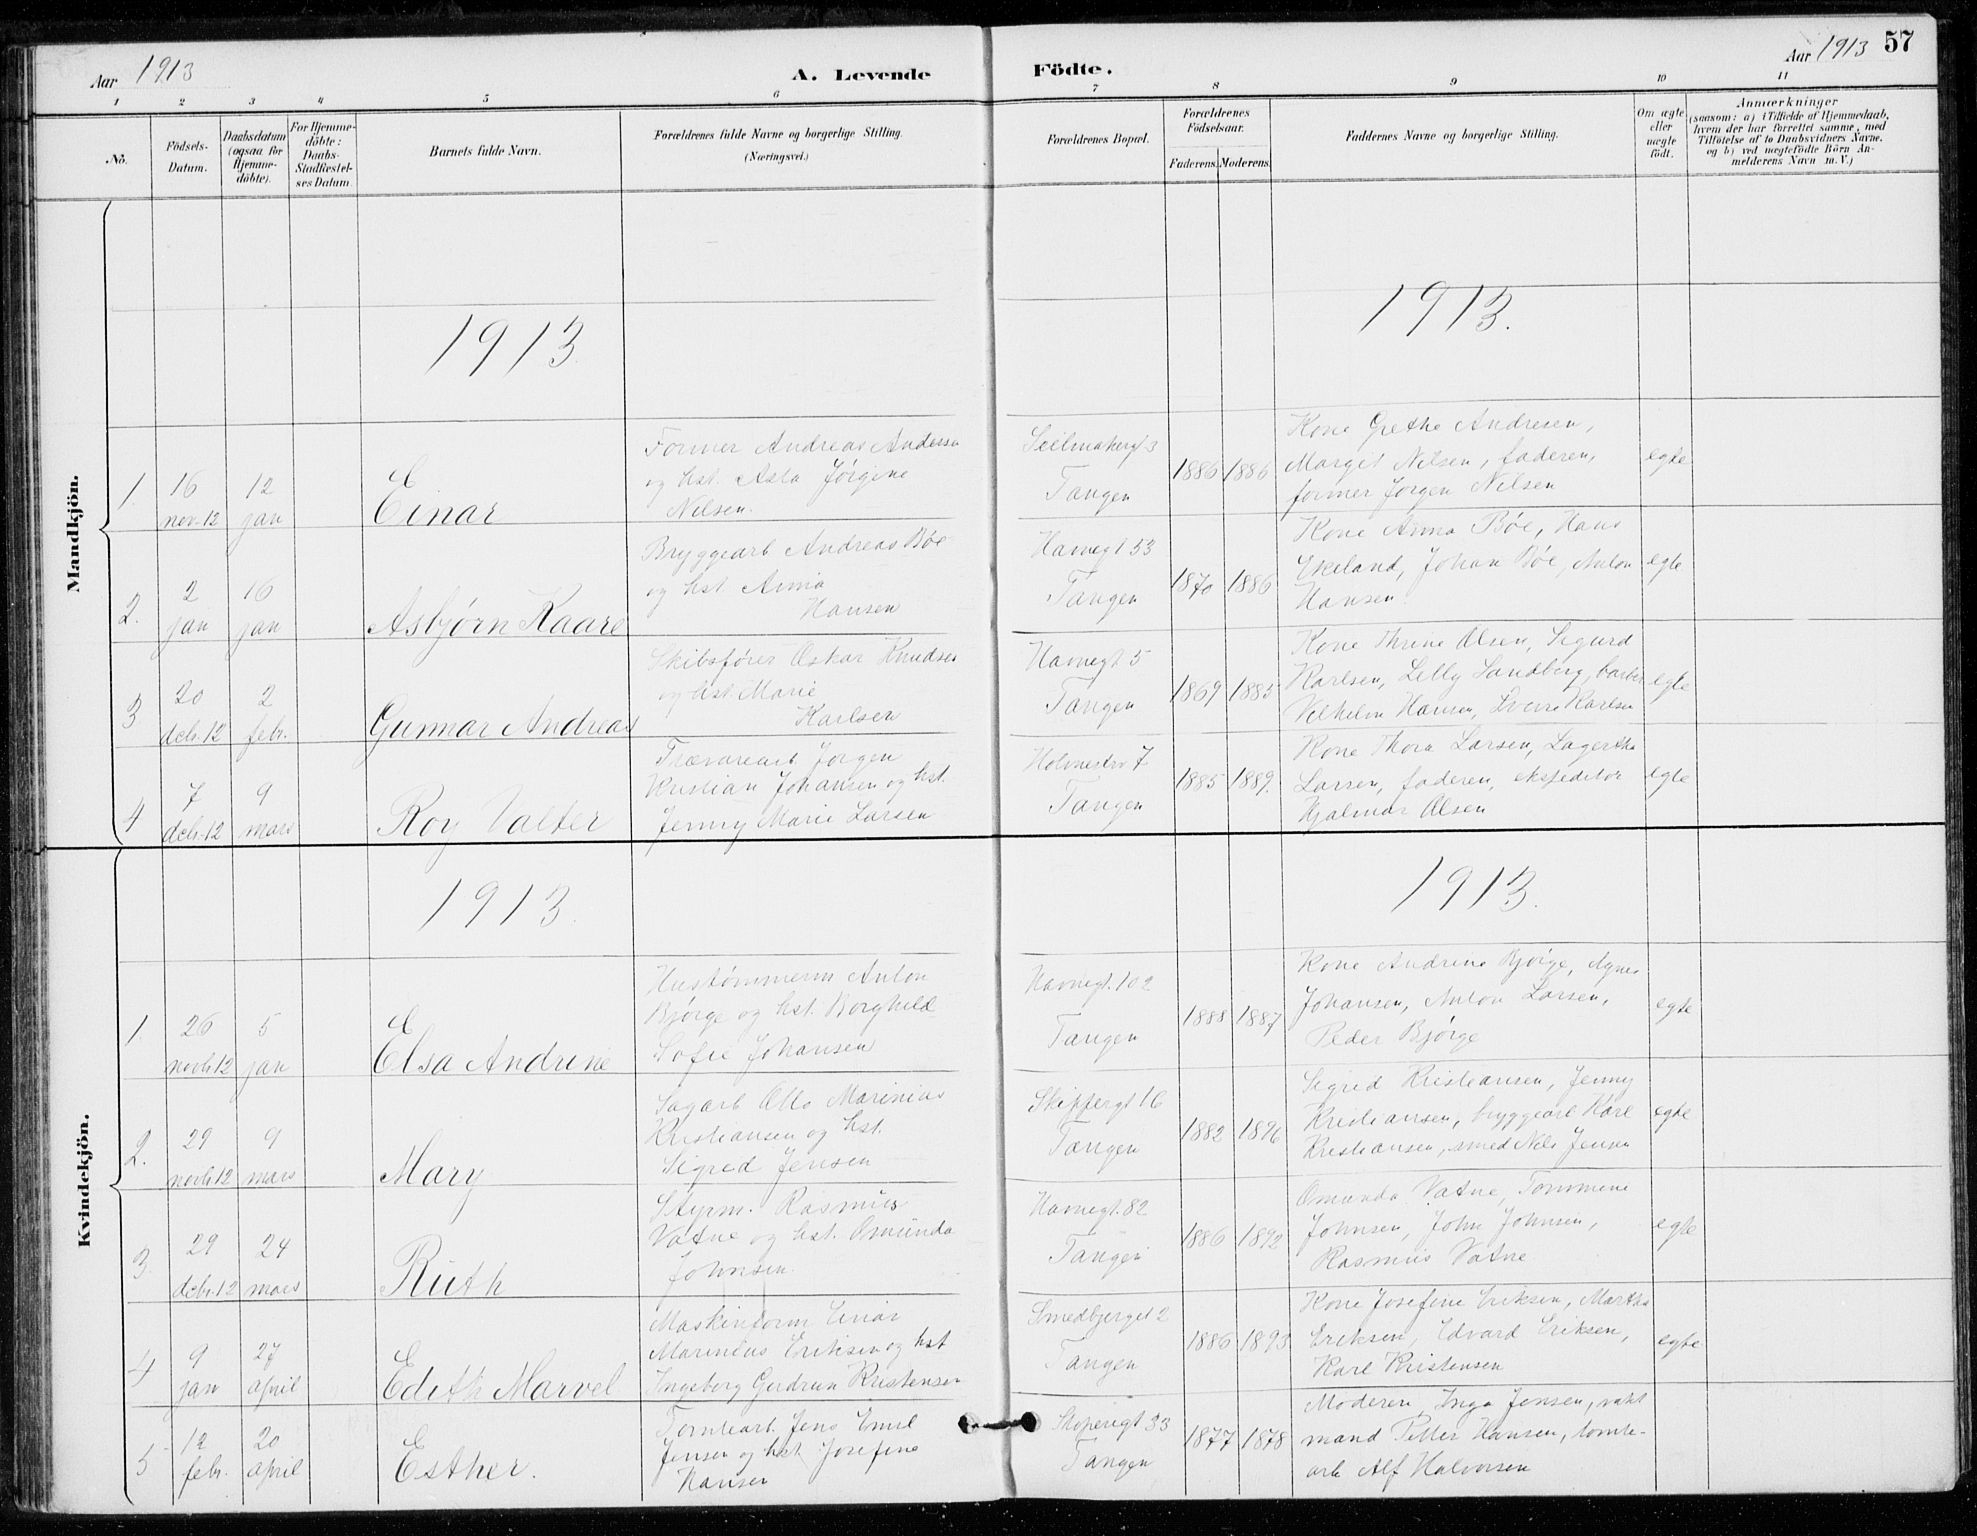 Aar 1913
A. Levende Födte.
Aar 1913 57
1 2 3 4 5 6 7 8 9 10 11
No.
Födsels-
Datum.
Daabsdatum
(ogsaa for
Hjemme-
döbte).
For Hjemme-
döbte:
Daabs-
Stadfæstel-
ses Datum
Barnets fulde Navn.
Forældrenes fulde Navne og borgerlige Stilling.
(Næringsvei.)
Forældrenes Bopæl.
Forældrenes
Födselsaar.
Faderens. Moderens.
Faddernes Navne og borgerlige Stilling.
Om ægte
eller
uægte
födt.
Anmærkninger
(saasom: a) i Tilfælde af Hjemmedaab,
hvem der har forrettet samme, med
Tilföielse af to Daabsvidners Navne.
og b) ved uægtefödte Börn An-
melderens Navn m. V.)
Mandkjön.
1913.
1913.
1.
16
nov. 12
12
jan
Einar
Former Andreas Anderse
og hst. Asta Jørgine
Nilsen.
Seilmakergt 3
Tangen
1886 1886
Kone Grethe Andresen,
Margit Nilsen, faderen,
former Jørgen Nilsen
egte
2.
2
jan
16
jan
Asbjørn Kaare
Bryggearb Andreas Bøe
og hst. Anna
Hansen
Havnegt 53
Tangen
1870 1886
Kone Anna Bøe, Hans
Ekeland, Johan Bøe, Anton
Hansen.
egte
3
20
dcb. 12
2
febr.
Gunnar Andreas
Skibsfører Oskar Knudsen
og hst. Marie
Karlsen
Havnegt 5
Tangen
1869 1885
Kone Thrine Olsen, Sigurd
Karlsen, Lelly Sandberg, barber
Vilhelm Hansen, Karlsen
egte
4
7
dcb. 12
9
mars
Roy Valter
Trævarearb Jørgen
Kristian Johansen og hst.
Jenny Marie Larsen
7
Tangen
1885 1889.
Kone Thora Larsen, Lagertha
Larsen, faderen, ekspeditør
Hjalmar Olsen
egte
Kvindekjön.
1913.
1913.
1.
26
novb. 12
5
jan
Elsa Andrine
Hustømmerm Anton
Bjørge og hst. Borghild
Sofie Johansen
Havnegt. 102
Tangen
1888 1887
Kone Andrine Bjørge, Agnes
Johansen, Anton Larsen,
Peder Bjørge
egte
2.
29
novb. 12
9
mars
Mary
Sagarb Otto Marinius
Kristiansen og hst.
Sigred Jensen
Skippergt 16
Tangen
1882 1896
Sigred Kristiansen, Jenny
Kristiansen, bryggearb Karl
Kristiansen, smed Nils Jensen
egte
3.
29
dcb. 12
24
mars
Ruth
Styrm. Rasmus
Vatne og hst. Omunda
Johnsen.
Havnegt. 82
Tangen
1886 1892
Omunda Vatne, Tommine
Johnsen, John Johnsen,
Rasmus Vatne
egte
4
9
jan
27
april
Edith Marvel
Maskinform Einar
Marinius Eriksen og hst
Ingeborg Gudrun Kristensen
Smedbjerget 2
Tangen
1886 1893
Kone Josefine Eriksen, Martha
Eriksen, Edvard Eriksen,
Karl Kristensen
egte
5
12
febr.
20
april
Esther.
Tomtearb. Jens Emil
Jensen og hst. Josefine
Hansen
33
Tangen
1877 1878
Moderen, Inga Jensen, vakt
mand Petter Hansen, tomte-
arb Alf Halvorsen